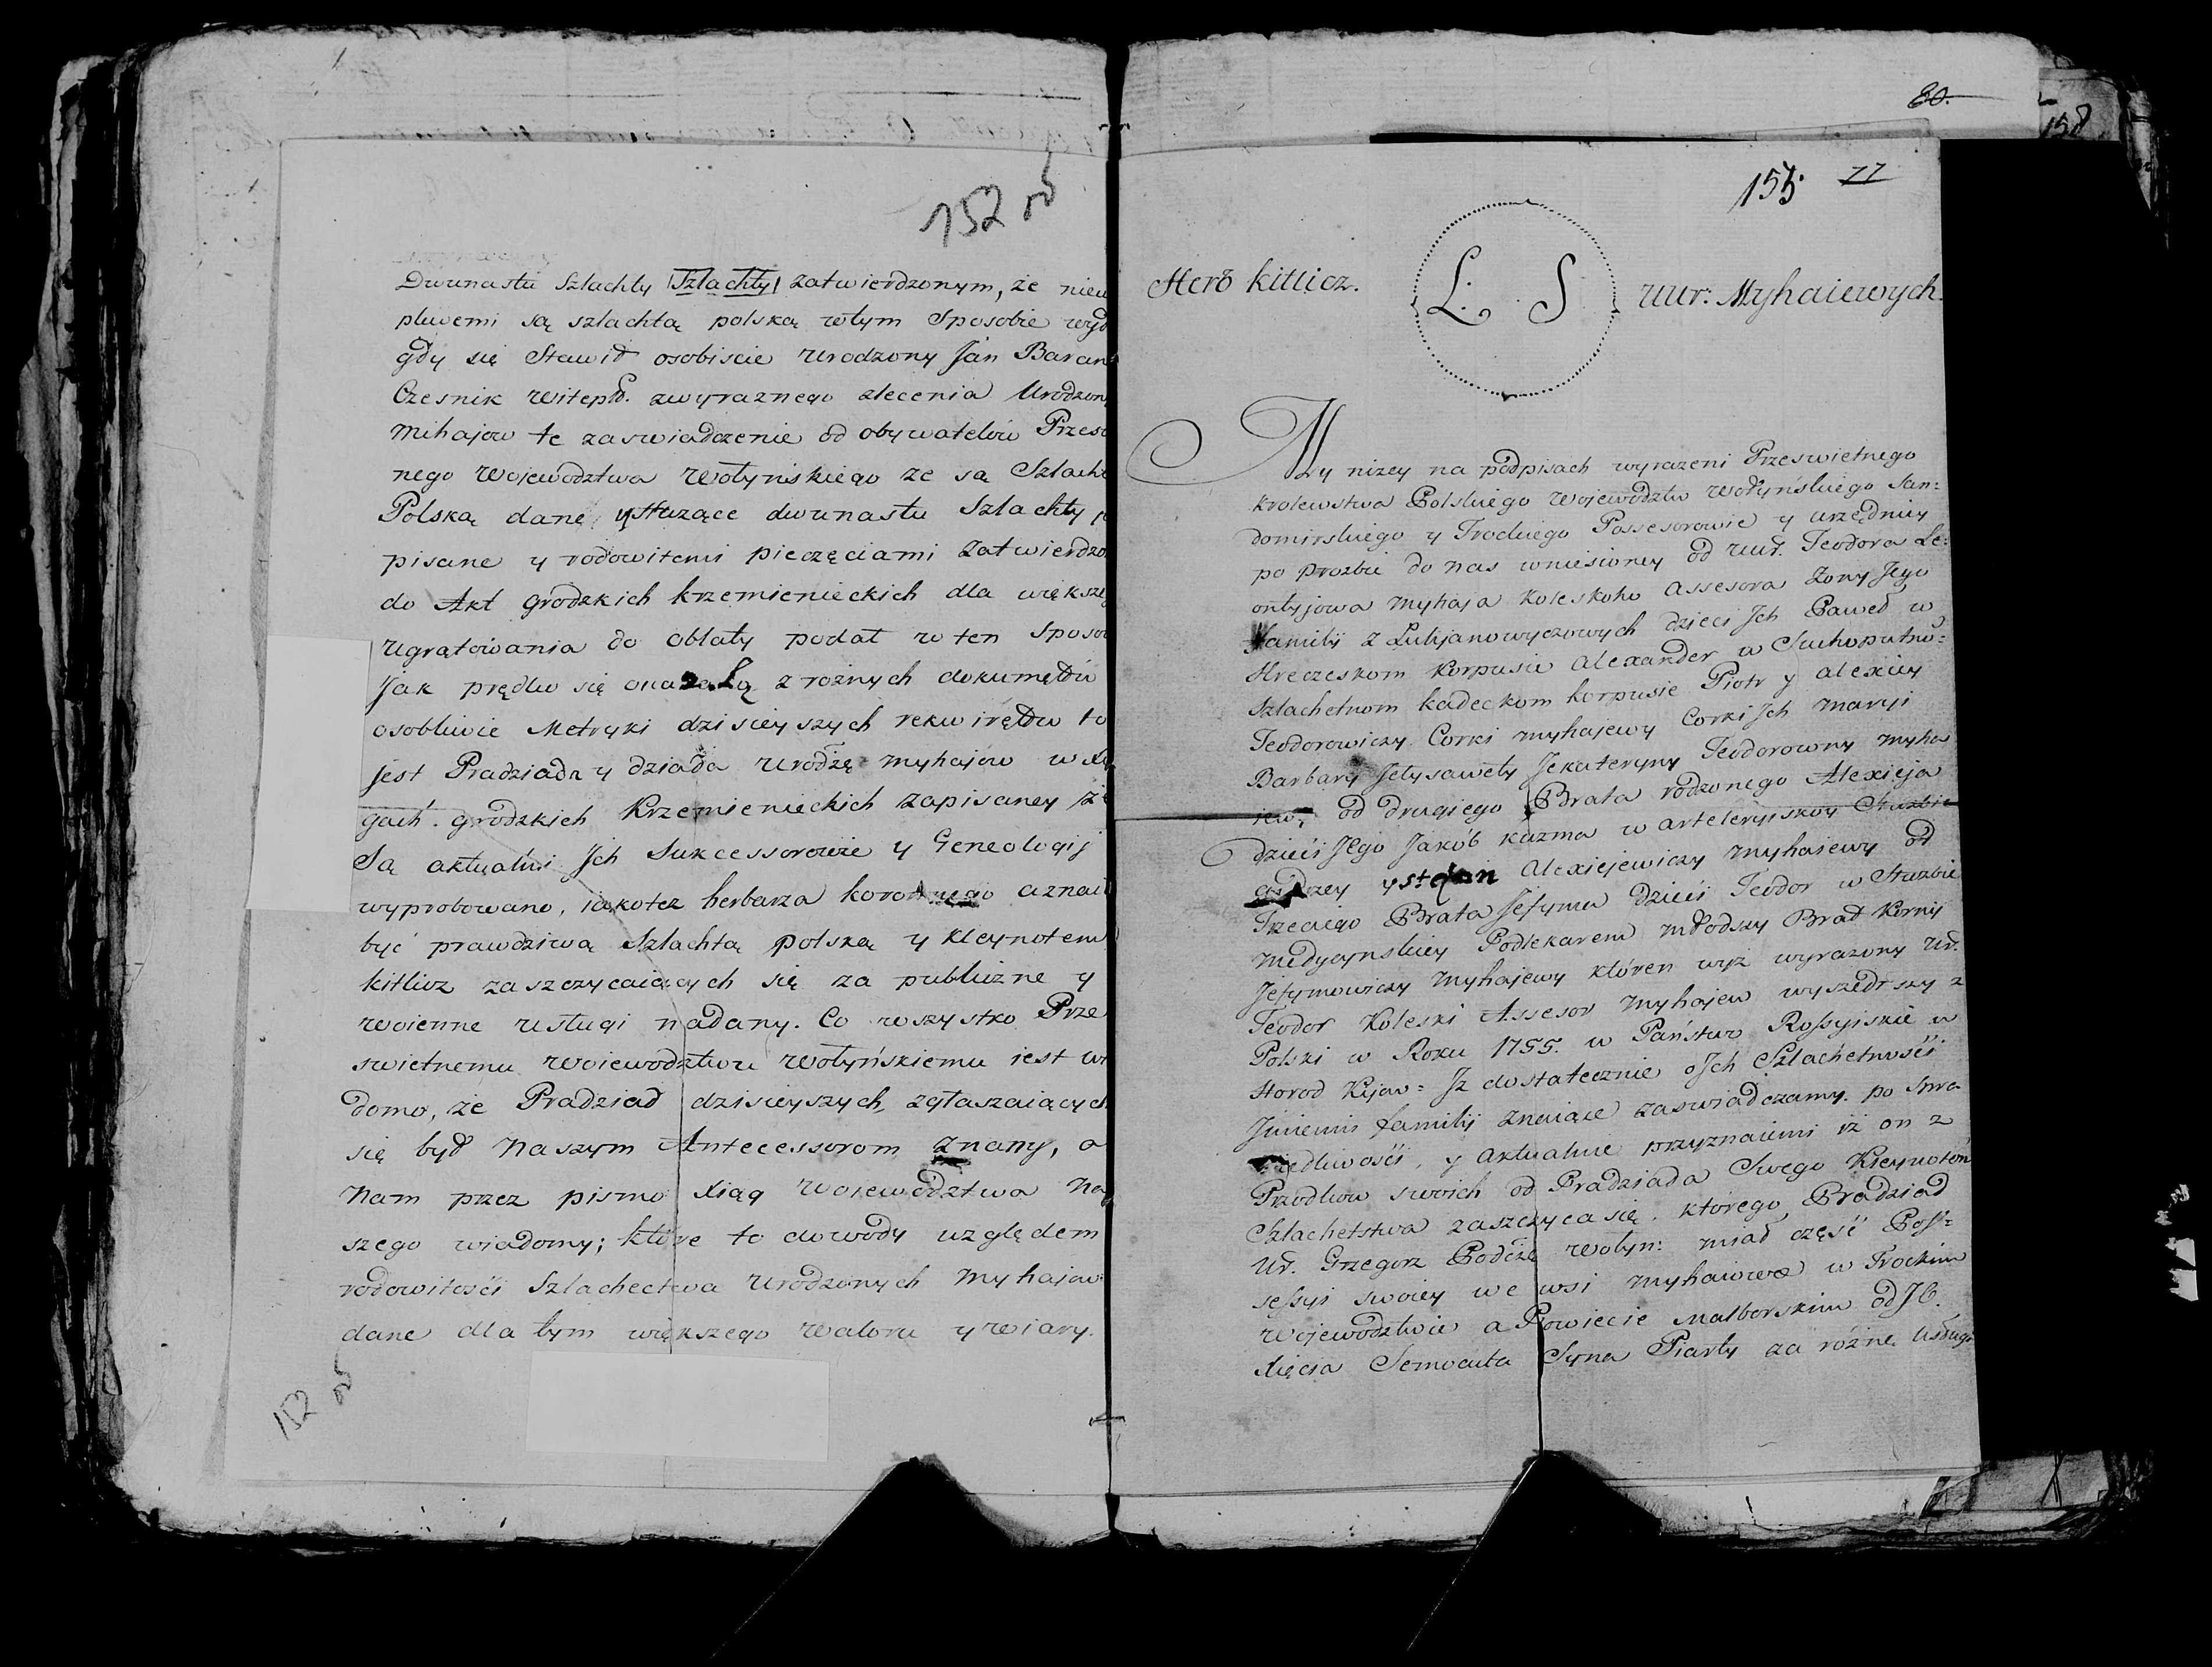 152 об
Dwunastu Szlachty |Szlachty| zatwierdzonym, że niew
pliwemi są szlachtą polską w tym Sposobie wyd
gdy się Stawił osobiscie Urodzony Jan Baran
Czesnik Witepł. zwyraznego zlecenia Urodzon
Mihajow te zaswiadczenie od obywatelów Przes
nego Wojewodztwa Wołyńskiego ze są Szlacht
Polską dane y służące dwunastu Szlachty p
pisane y rodowitemi pieczęciami zatwierdzo
do Akt grodzkich krzemienieckich dla większeg
Ugrątowania do oblaty podał w ten Sposob
Jak prędko się okazało z rożnych dokumętów
osobliwie Metryki dzisieyszych rekwirętów to
jest Pradziada y dziada Urodzę Myhajów w xię
gach grodzkich Krzemienieckich zapisaney że
Są aktualni Jch Sukcessorowie y Geneologij
wyprobowano, iakotez herbarza koronnego aznai
być prawdziwą Szlachtą polską y kleynotem
kitlicz zaszczycaiących się za publiczne y
woienne usługi nadany. Co wszystko Prze
swietnemu Woiewodztwu Wołyńskiemu iest wi
domo, że Pradziad dzisieyszych zgłaszaiących
się był Naszym Antecessorom znany, a
Nam przez pismo xiąg Woiewodztwa Na
szego wiadomy; które to dowody względem
rodowitości Szlachectwa Urodzonych Myhajow
dane dla tym większego Waloru y wiary.
152 об
80.
158
155. 77
Herb kitlicz.
L. S
UUr: Myhaiewych.
My nizey na podpisach wyrazeni Przeswietnego
krolewstwa Polskiego Wojewodztw Wołyńskiego San=
domirskiego y Trockiego Possesorowie y urzędnicy
po prozbie do nas wniesioney od UUr. Teodora Le=
ontyjowa Myhaja Koleskoho Assesora Zony Jego
familij z Lukjanowyczowych dzieci Jch Paweł w
Hreczeskom Korpusie Alexander w Suchoputno=
Szlachetnom kadeckom korpusie Piotr y Alexiey
Teodorowiczy Corki Myhajewy Corki Jch Maryi
Barbary Jelysawety Jekateryny Teodorowny Myha
iew, od drugiego Brata rodzonego Alexieja
dzieci Jego Jakób kuzma w arteleryiskoy Służbie
andrzey y stefan Alexiejewiczy Myhaiewy od
Trzeciego Brata Jefyma dzieci Teodor w Służbie
Medycynskiey Podlekarem młodszy Brat Korniy
Jefymowiczy Myhajewy któren wyz wyrazony Ur.
Teodor Koleski Assesor Myhajew wyszedłszy z
Polski w Roku 1755. w Państwo Rossyiskie w
Horod Kijow= Jz dostatecznie o Jch Szlachetności
Jmieniu familij znaiące zaswiadczamy. po Spra
wiedliwości, y aktualnie przyznaiemi iż on z
Przodków swoich od Pradziada Swego Kleynotem
Szlachetstwa zaszczyca się. którego Pradziad
Ur. Grzegorz Podczę Wołyn: miał część Pos=
sessyi swoiey we wsi Myhaiowce w Trockim
Wojewodztwie a Powiecie Malborskim od JO.
Xięcia Semowita Syna Piasty za różne Usługi